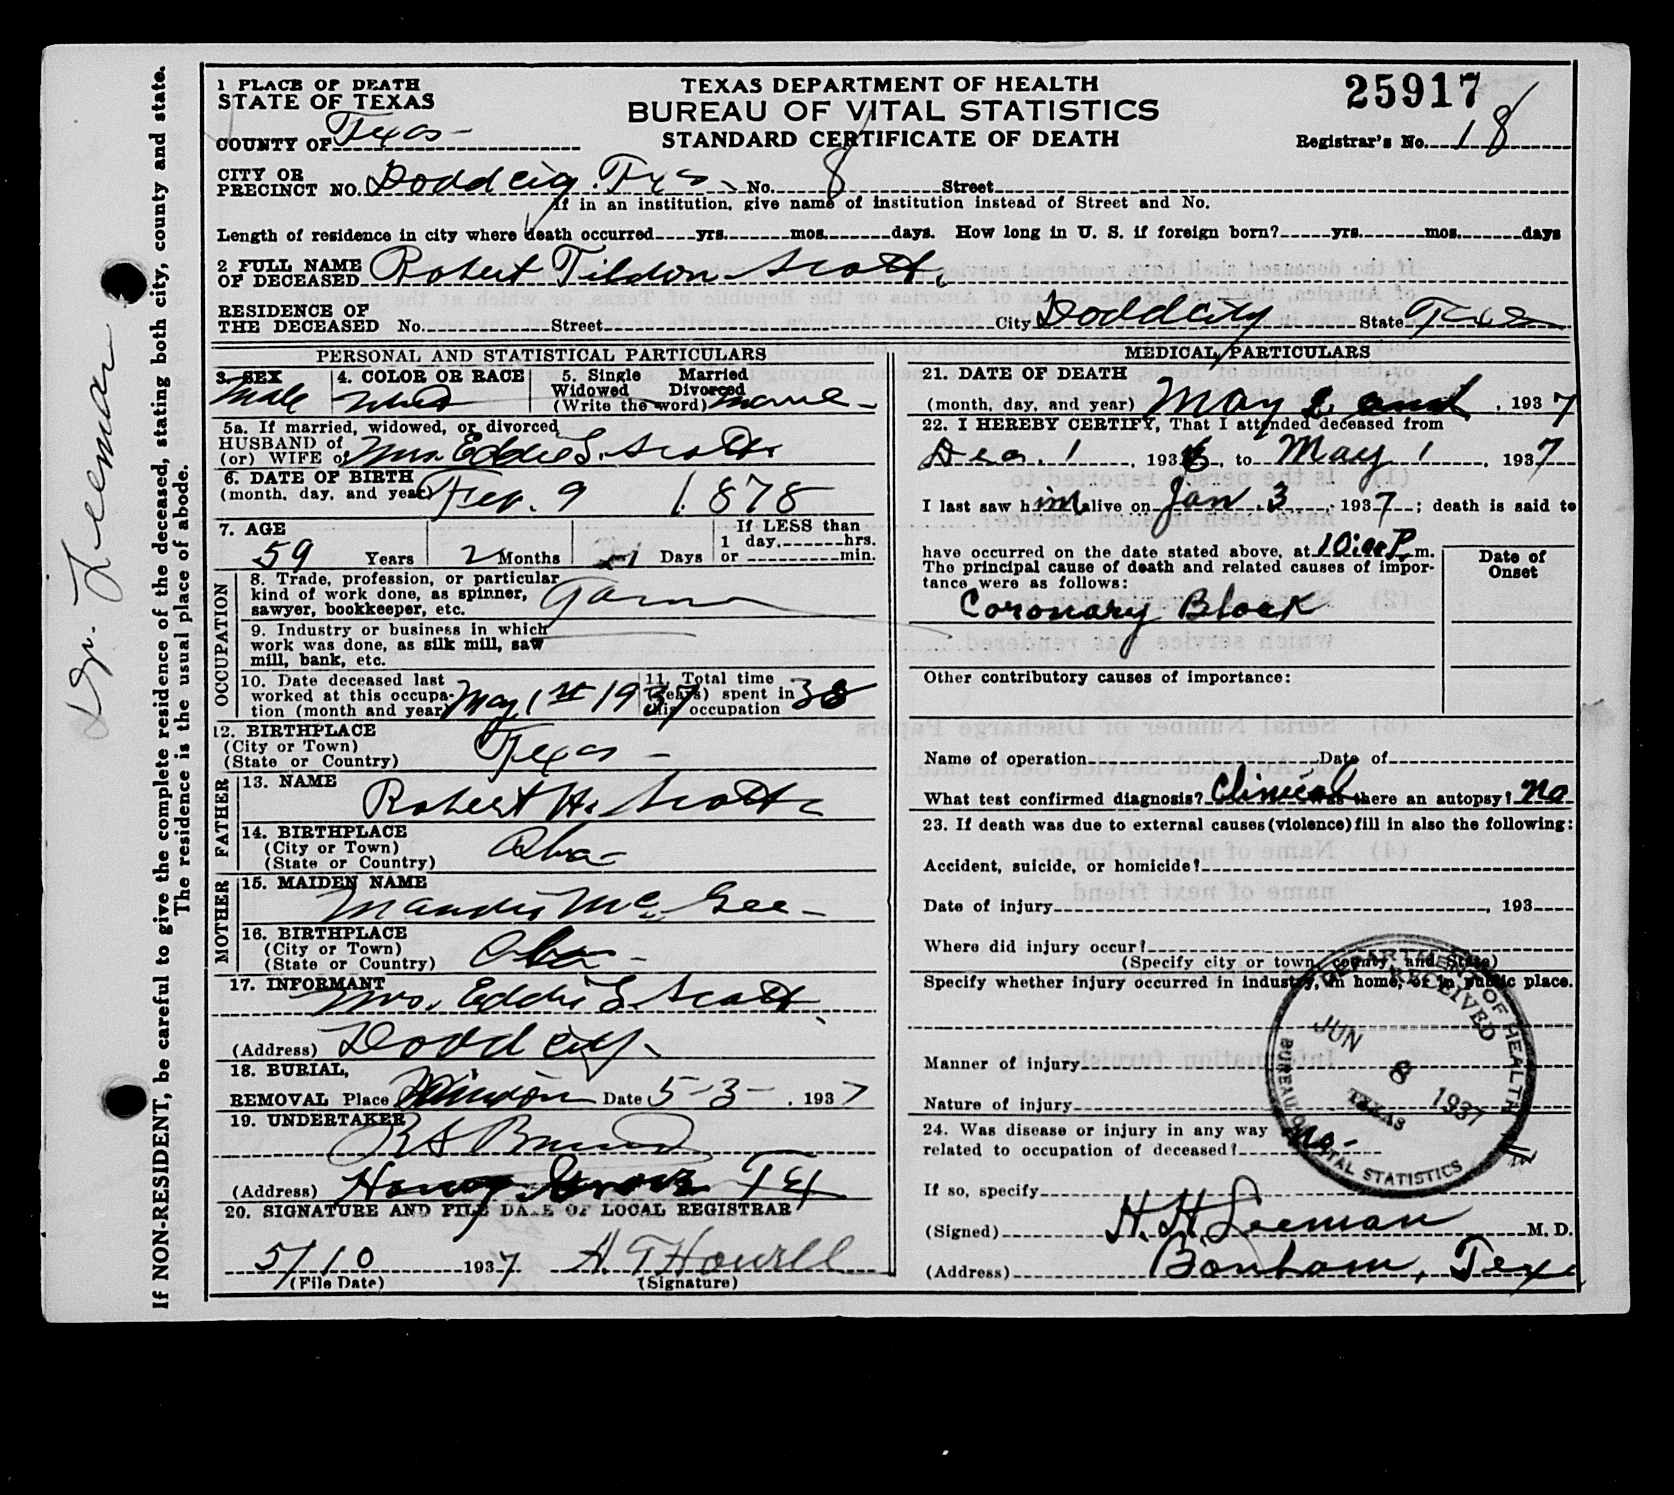 If NON-RESIDENT, be careful to give the complete residence of the deceased, stating both city, county and state.
The residence is the usual place of abode.
Dr. Leeman
1 PLACE OF DEATH
STATE OF TEXAS
COUNTY OF Texas
TEXAS DEPARTMENT OF HEALTH
BUREAU OF VITAL STATISTICS
STANDARD CERTIFICATE OF DEATH
25917
Registrar's No. 18
CITY OR
PRECINCT NO. Dodd city. Texas No. 8 Street
If in an institution, give name of institution instead of Street and No.
Length of residence in city where death occurred yrs. mos. days. How long in U. S. if foreign born? yrs. mos. days
2 FULL NAME
OF DECEASED Robert Tildon Scott.
RESIDENCE OF
THE DECEASED No. Street City Dodd city State Texas
PERSONAL AND STATISTICAL PARTICULARS
3. SEX Male
4. COLOR OR RACE
5. Single Married
Widowed Divorced
(Write the word)
5a. If married, widowed, or divorced
HUSBAND of
(or) WIFE of Mrs. Eddie S. Scott
6. DATE OF BIRTH
(month, day, and year) Feb. 9 1878
7. AGE
59 Years 2 Months Days
If LESS than
1 day, hrs.
or min.
OCCUPATION
8. Trade, profession, or particular
kind of work done, as spinner,
sawyer, bookkeeper, etc.
9. Industry or business in which
work was done, as silk mill, saw
mill, bank, etc.
10. Date deceased last
worked at this occupa-
tion (month and year) May 1st 1937
11. Total time
(years) spent in
this occupation 38
12. BIRTHPLACE
(City or Town)
(State or Country) Texas
FATHER
13. NAME Robert H. Scott
14. BIRTHPLACE
(City or Town)
(State or Country) Ala
MOTHER
15. MAIDEN NAME McGee
16. BIRTHPLACE
(City or Town)
(State or Country) Ala
17. INFORMANT Mrs. Eddie S. Scott
(Address) Dodd city
18. BURIAL,
REMOVAL Place Date 5-3-, 1937
19. UNDERTAKER
(Address) Honey Grove Tex
20. SIGNATURE AND FILE DATE OF LOCAL REGISTRAR
5/10 1937
(File Date) (Signature)
MEDICAL PARTICULARS
21. DATE OF DEATH
(month, day, and year) May 2 , 1937
22. I HEREBY CERTIFY, That I attended deceased from
Dec. 1, 1936, to May 1, 1937
I last saw him alive on Jan. 3, 1937; death is said to
have occurred on the date stated above, at 10:00 P. m.
The principal cause of death and related causes of impor-
tance were as follows:
Date of
Onset
Coronary Block
Other contributory causes of importance:
Name of operation Date of
What test confirmed diagnosis? Clinical Was there an autopsy? No
23. If death was due to external causes (violence) fill in also the following:
Accident, suicide, or homicide?
Date of injury , 193
Where did injury occur?
(Specify city or town, county, and State)
Specify whether injury occurred in industry, in home, or in public place.
Manner of injury
Nature of injury
24. Was disease or injury in any way
related to occupation of deceased? No-
If so, specify
(Signed) H. H. Leeman M. D.
(Address) Bonham, Texas
DEPARTMENT OF HEALTH
RECEIVED
JUN 8 1937
TEXAS
BUREAU OF VITAL STATISTICS